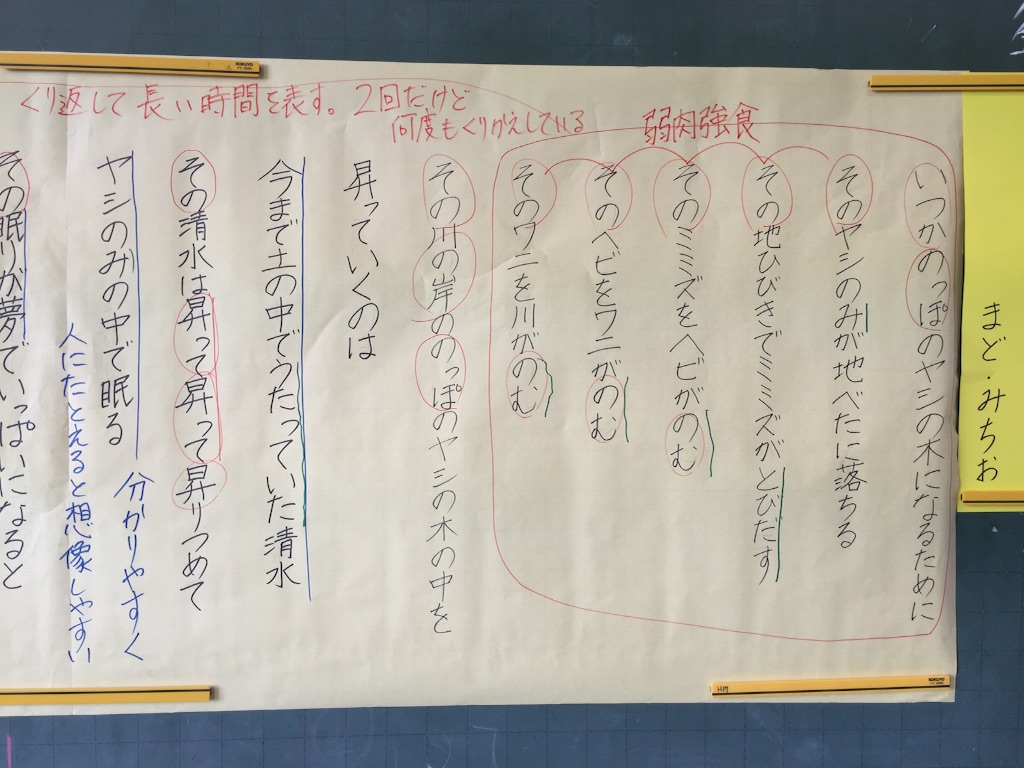 まど・みちお
いつかのっぽのヤシの木になるために
そのヤシのみが地べたに落ちる
その地ひびきでミミズがとびだす
そのミミズをヘビがのむ
そのヘビをワニがのむ
そのワニを川がのむ
その川の岸ののっぽのヤシの木の中を
昇っていくのは
今まで土の中でうたっていた清水
その清水は昇って昇って昇りつめて
ヤシのみの中で眠る
その眠りが夢でいっぱいになると
弱肉強食
くり返して長い時間を表す。2回だけど
何度もくりかえしている
分かりやすく
人にたとえると想像しやすい
KOKUYO
KOKUYO